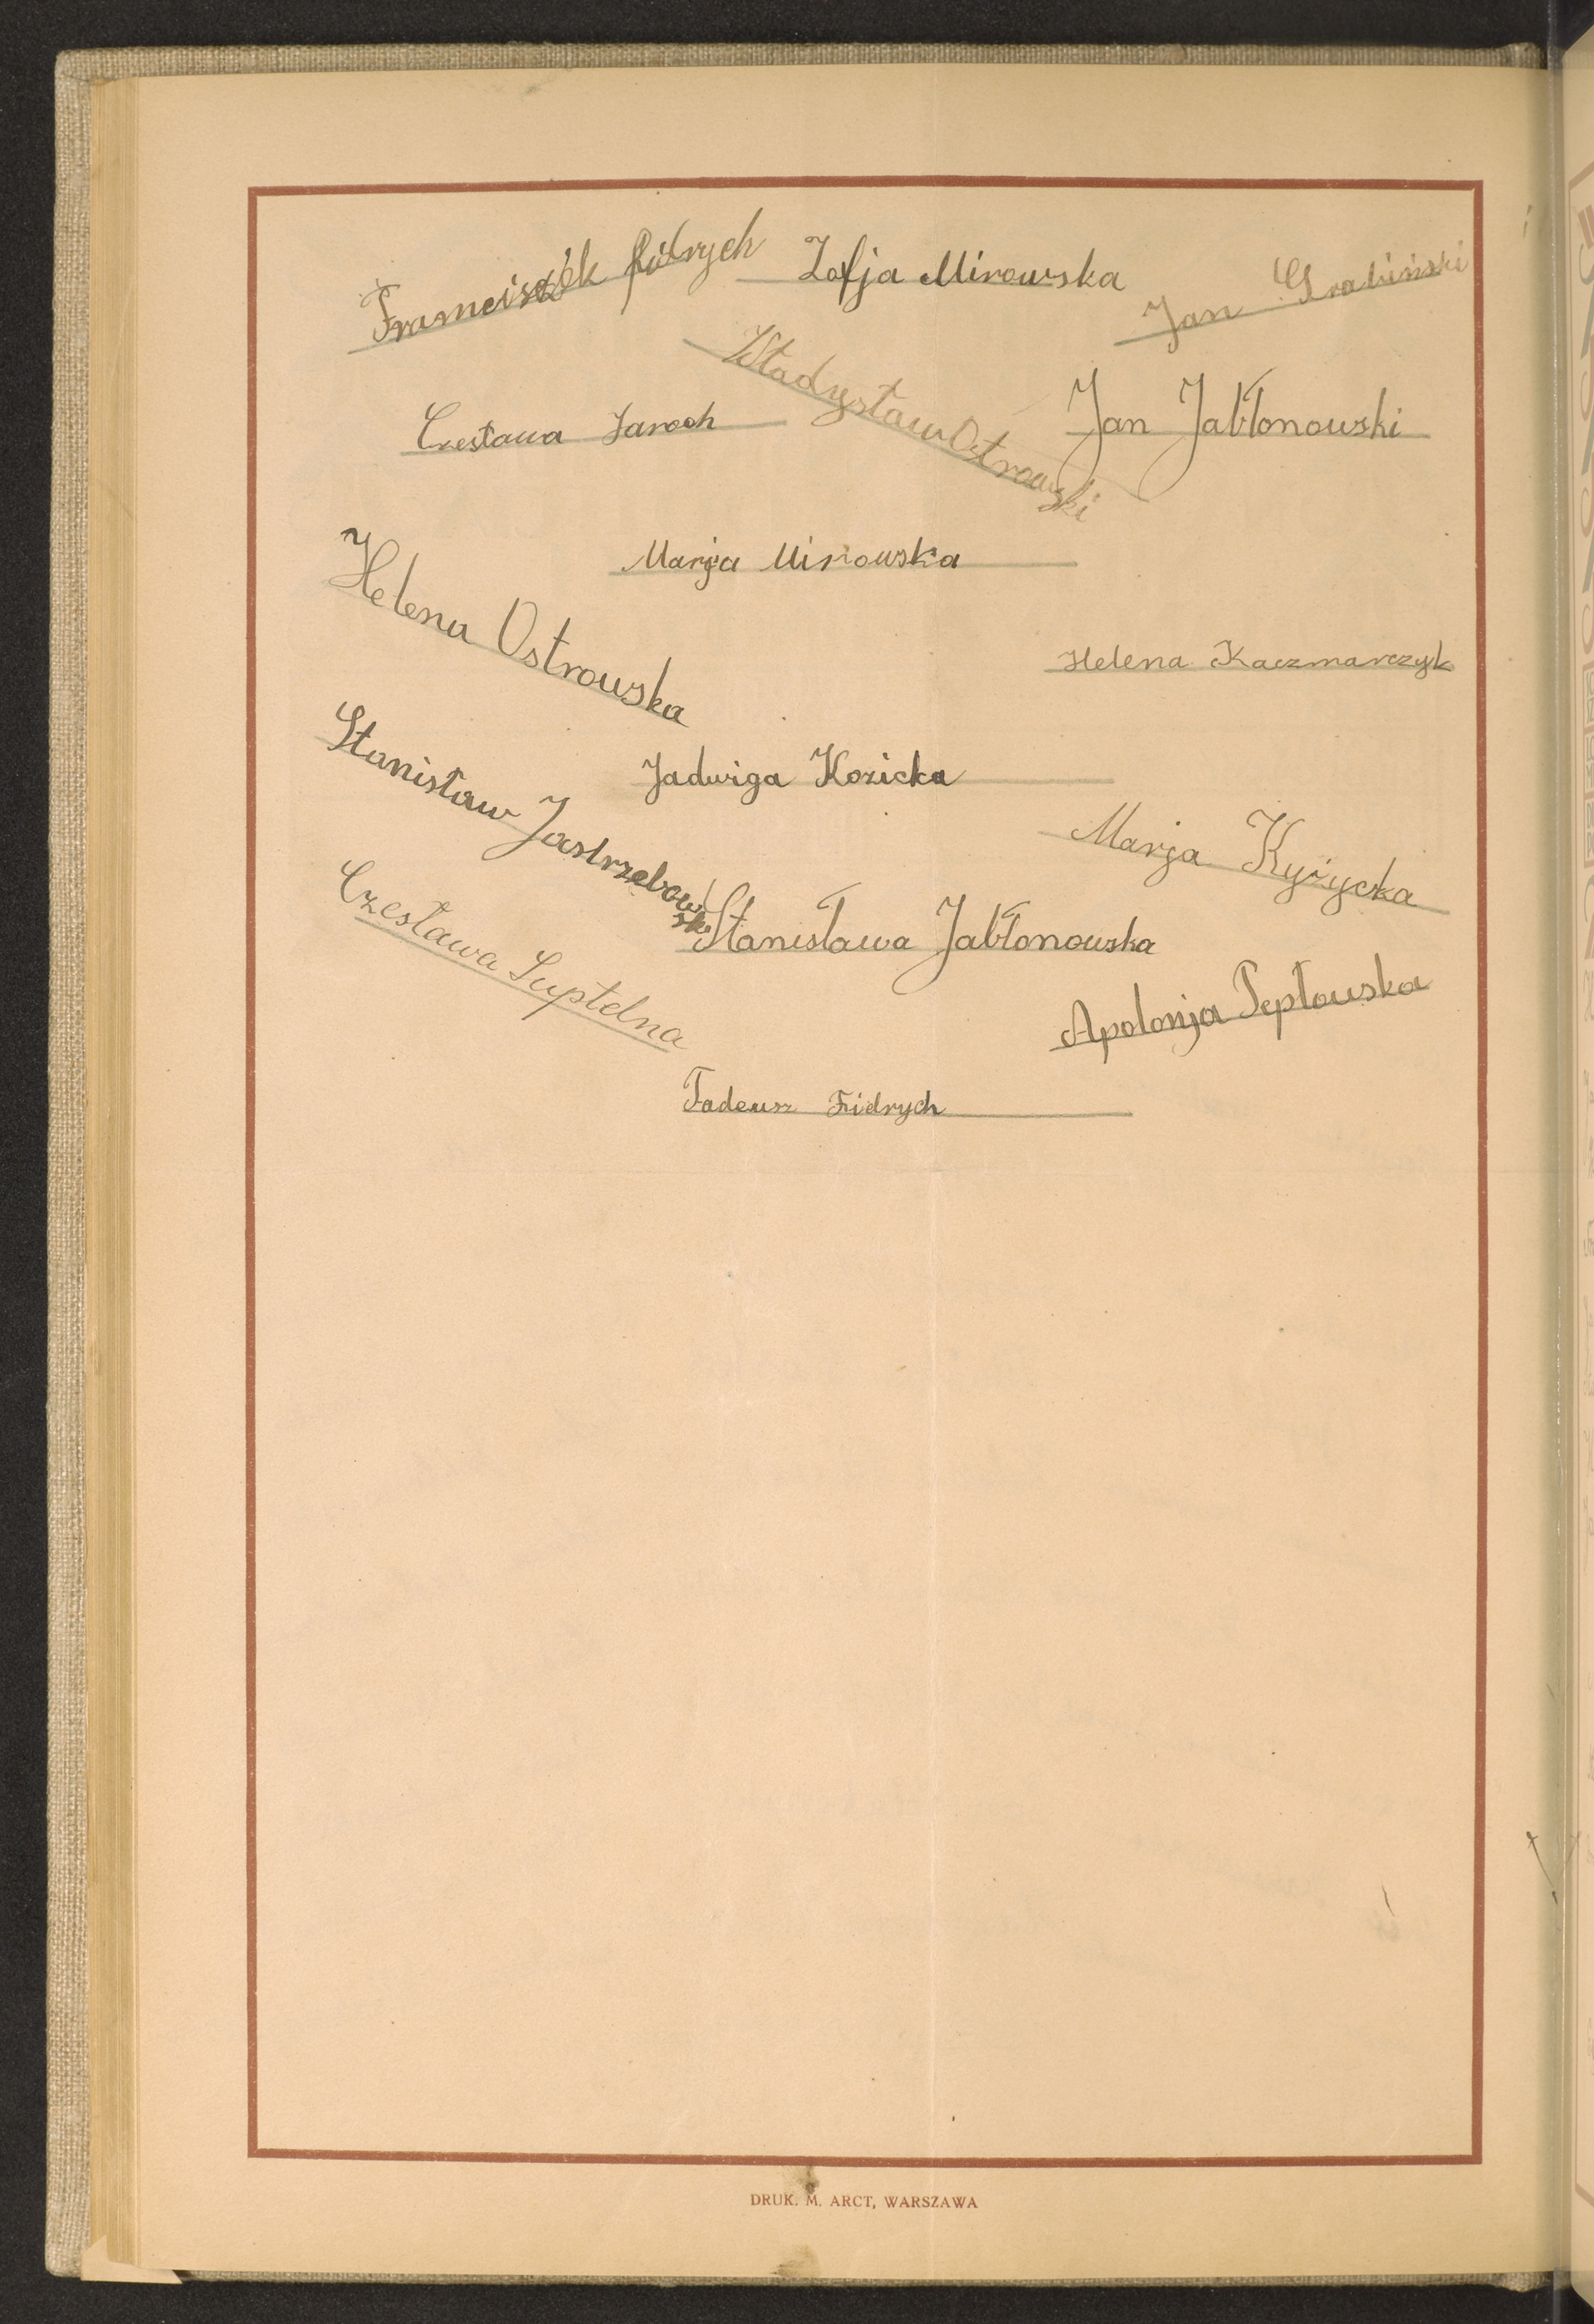 Franciszek Fidrych
Zofja Mirowska
Jan Grabiński
Władysław Ostrowski
Czesława Jaroch
Jan Jabłonowski
Marja Mirowska
Helena Ostrowska
Helena Kaczmarczyk
Stanisław Jastrzebowski
Jadwiga Kozicka
Marja Kyzycka
Czesława Suptelna
Stanisława Jabłonowska
Apolonja Pepłowska
Tadeusz Fidrych
DRUK. M. ARCT, WARSZAWA